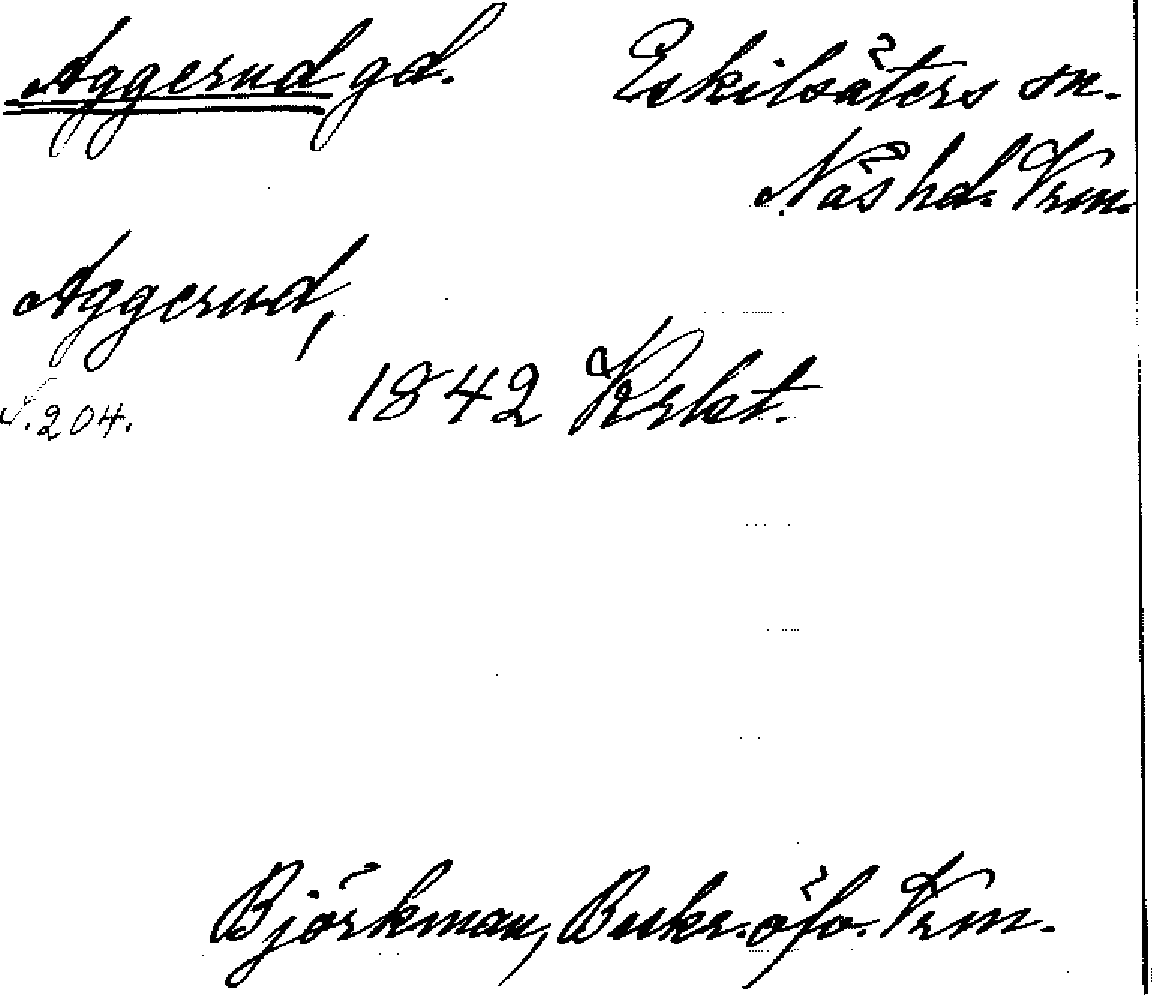 Aggerud gd. Eskilsäters sn.
Näs hd. Vrm.
Aggerud,
1842 Krbt.
S. 204.
Björkman, Beskr. öfv. Vrm.